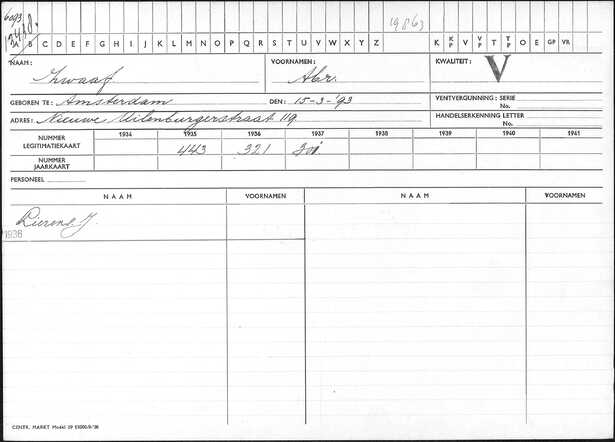 6093
19863
A B C D E F G H I J K L M N O P Q R S T U V W X Y Z K K/P V V/P T T/P O E GP VR
NAAM: Zwaaf VOORNAMEN: Abr. KWALITEIT: V
GEBOREN TE: Amsterdam DEN: 15-3-'93 VENTVERGUNNING: SERIE No.
ADRES: Nieuwe Uilenburgerstraat 119 HANDELSERKENNING LETTER No.
NUMMER LEGITIMATIEKAART 1934 1935 1936 1937 1938 1939 1940 1941
443 321 301
NUMMER JAARKAART
PERSONEEL
NAAM VOORNAMEN NAAM VOORNAMEN
Lierens J.
1936
CENTR. MARKT Model 59